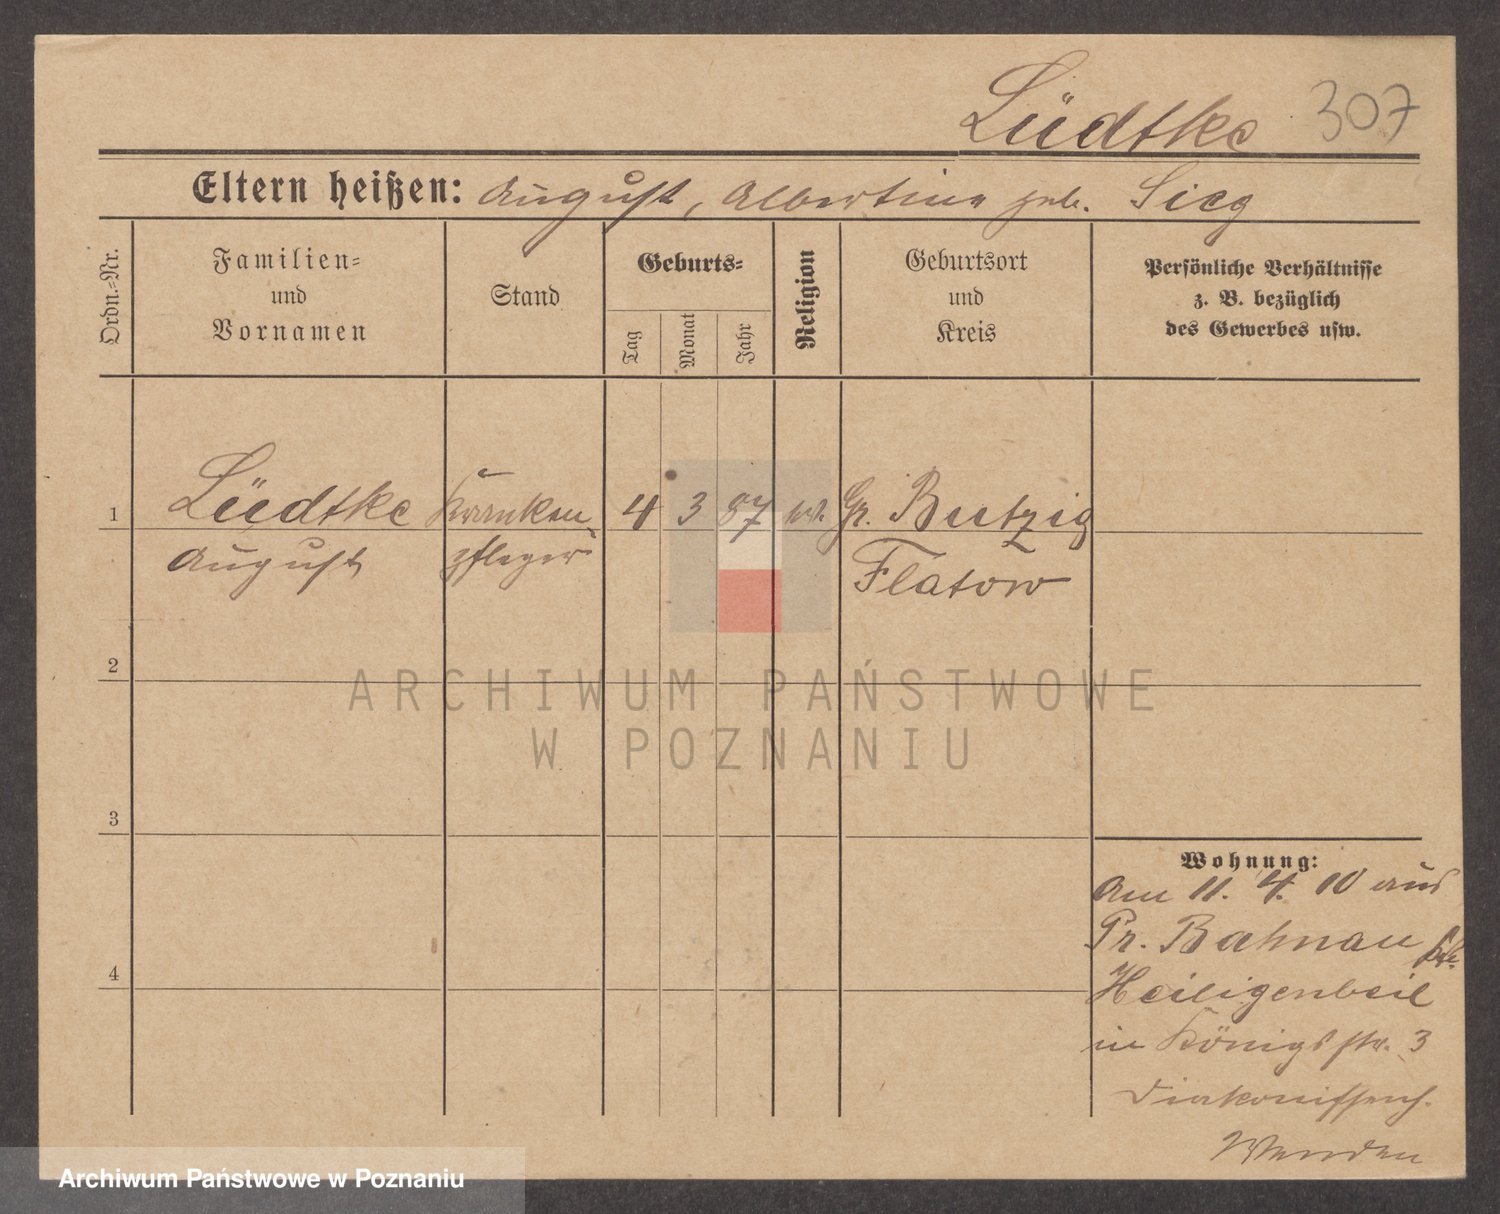 Lüdtke 307
Eltern heißen: August, Albertine geb. Sieg
Ordn.-Nr.
Familien-
und
Vornamen
Stand
Geburts-
Tag
Monat
Jahr
Religion
Geburtsort
und
Kreis
Persönliche Verhältnisse
z. B. bezüglich
des Gewerbes usw.
1 Lüdtke Kranken 4 3 87 ev. Gr. Butzig
August pfleger Flatow
2
3
4
Wohnung:
Am 11. 4. 10 aus
Pr. Bahnau
Heiligenbeil
in Königsstr. 3
Diakonissenh.
Wenden
ARCHIWUM PAŃSTWOWE
W POZNANIU
Archiwum Państwowe w Poznaniu